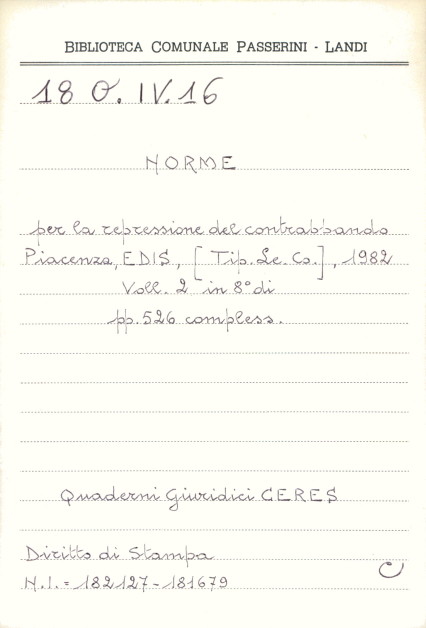 BIBLIOTECA COMUNALE PASSERINI - LANDI
18 O. IV. 16
NORME
per la repressione del contrabbando
Piacenza, EDIS, [Tip. Le. Co.], 1982
Voll. 2 in 8° di
pp. 526 compless.
Quaderni Giuridici CERES
Diritto di Stampa
N.I. = 182127 - 181679
C